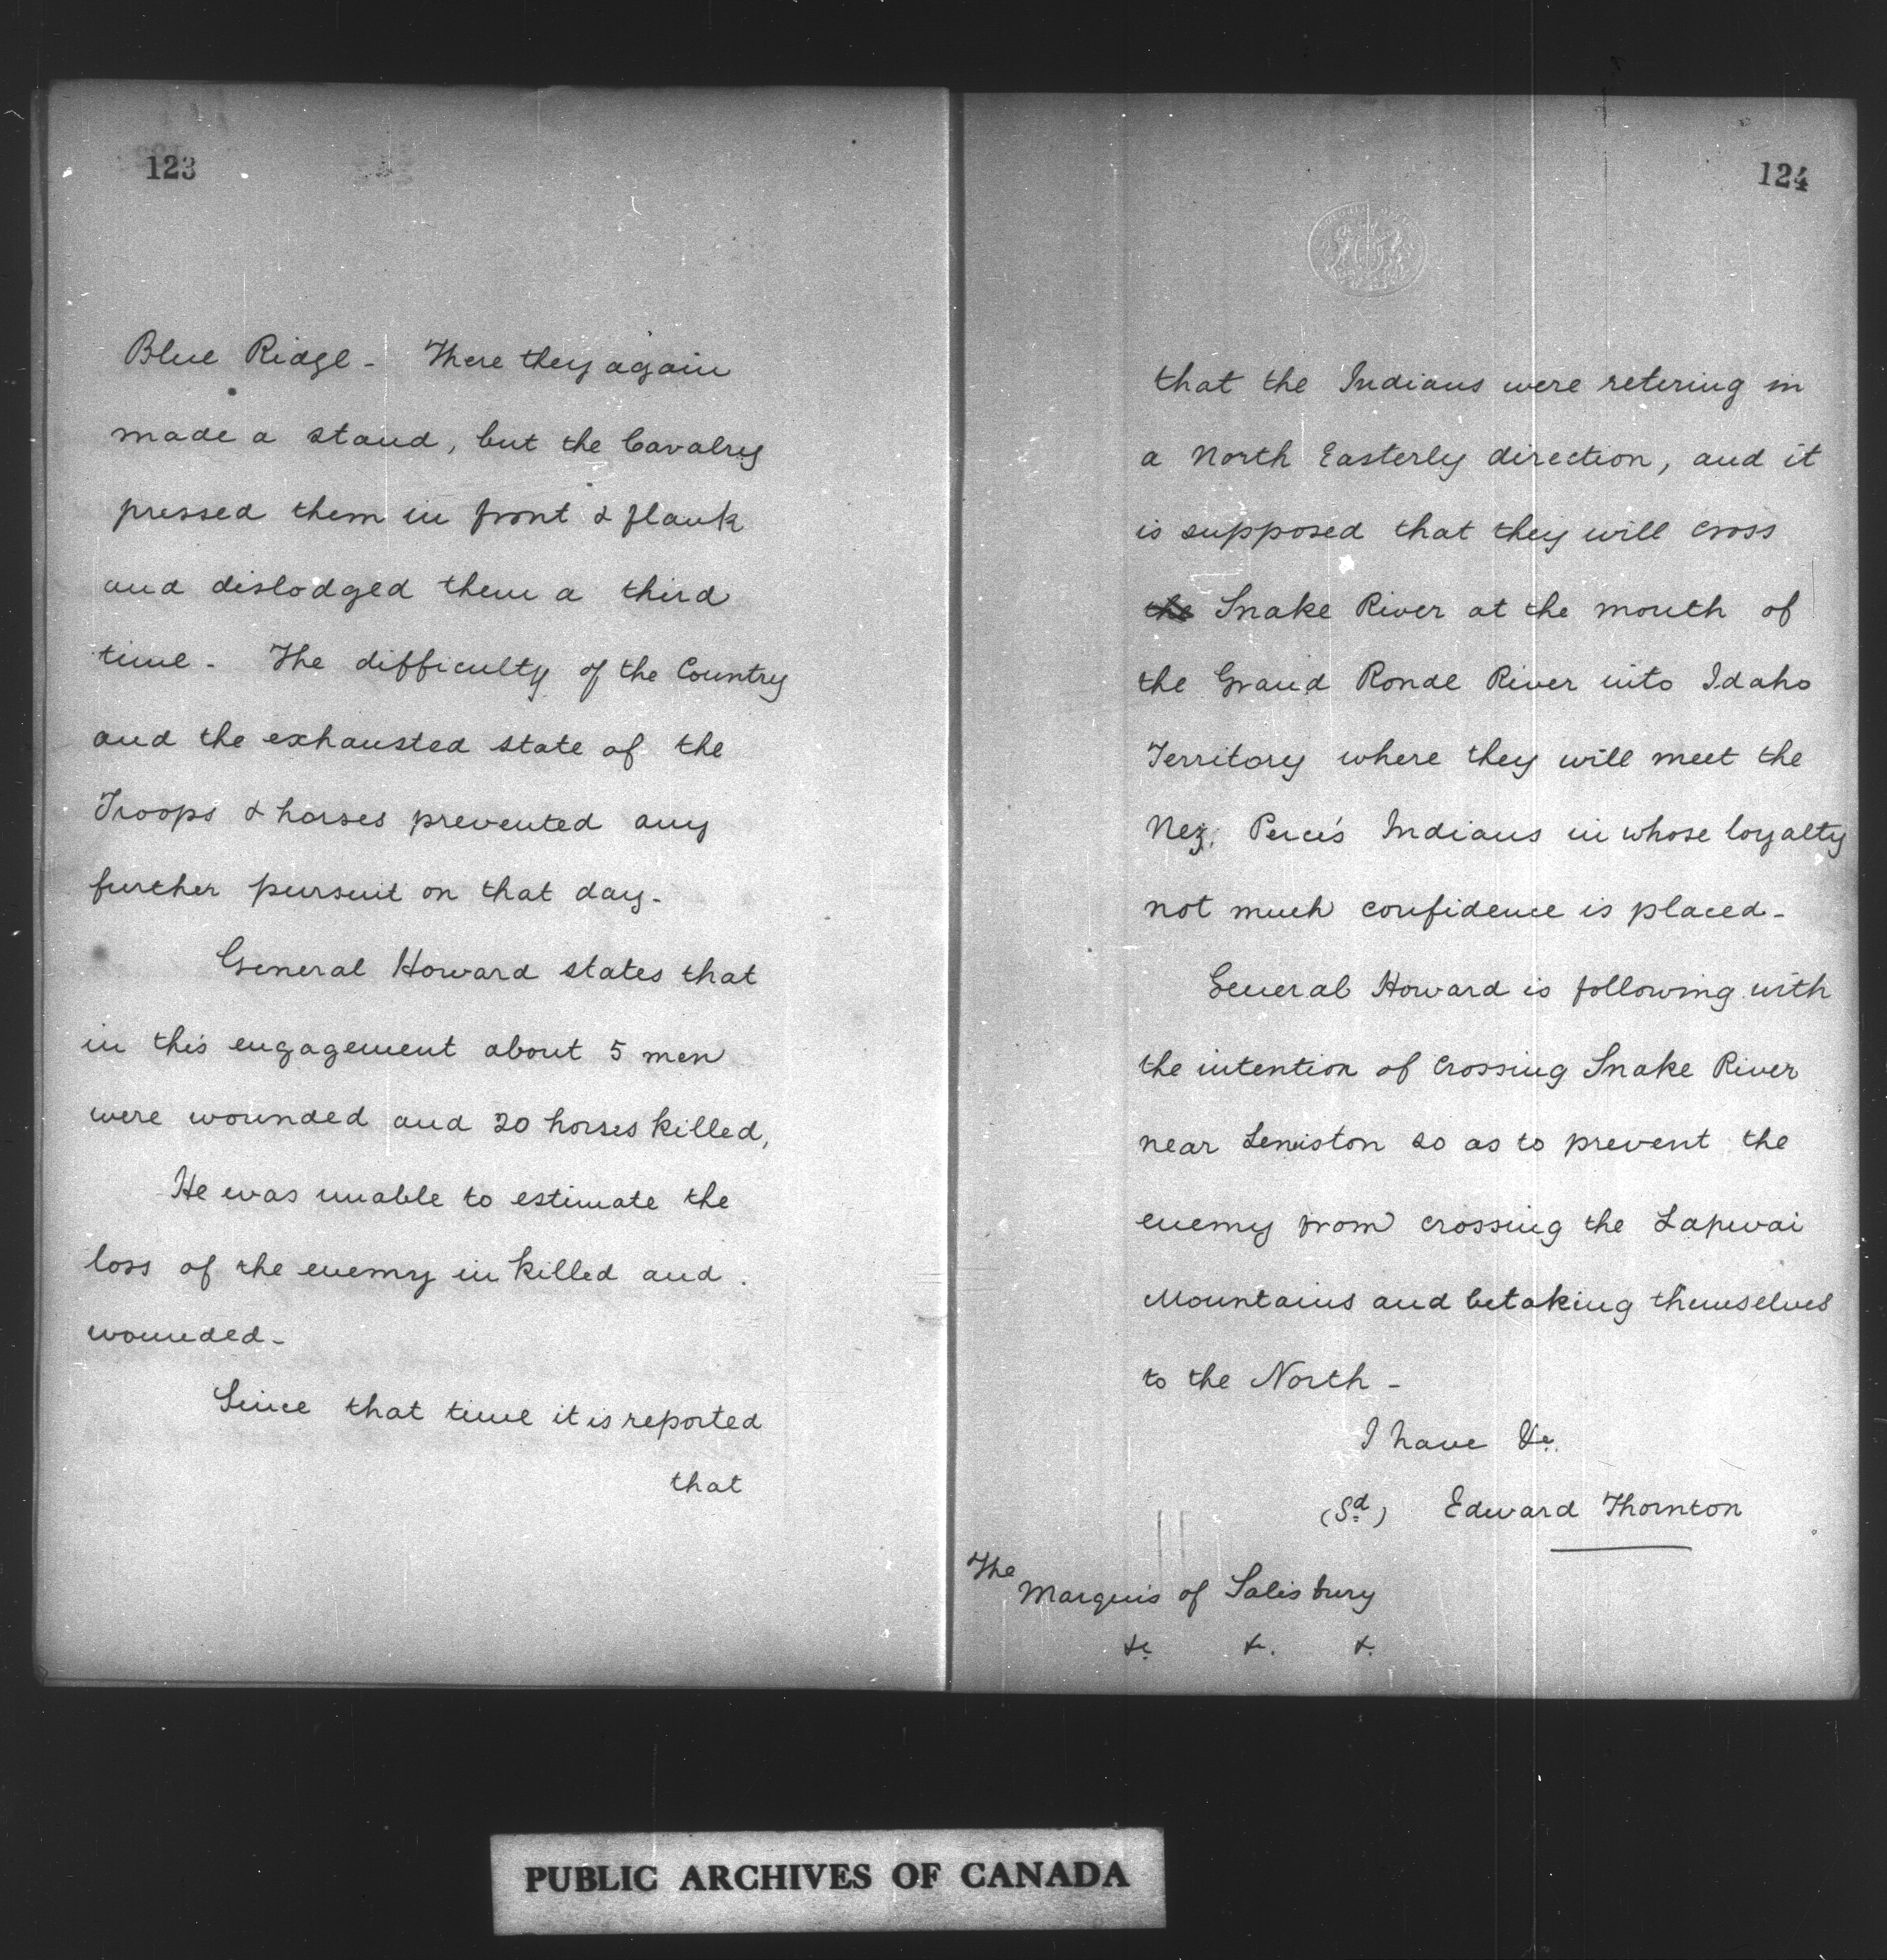 123
Blue Ridge - There they again
made a stand, but the Cavalry
pressed them in front & flank
and dislodged them a third
time - The difficulty of the Country
and the exhausted state of the
Troops & horses prevented any
further pursuit on that day -
General Howard states that
in this engagement about 5 men
were wounded and 20 horses killed,
He was unable to estimate the
loss of the enemy in killed and
wounded -
Since that time it is reported
that
124
that the Indians were retering in
a North Easterly direction, and it
is supposed that they will cross
the Snake River at the mouth of
the Grand Ronde River into Idaho
Territory where they will meet the
Nez, Percés Indians in whose loyalty
not much confidence is placed -
General Howard is following with
the intention of crossing Snake River
near Lewiston so as to prevent the
enemy from crossing the Lapwai
Mountains and betaking themselves
to the North -
I have &c.
(Sd) Edward Thornton
The
Marquis of Salisbury
&c &c. &.
PUBLIC ARCHIVES OF CANADA